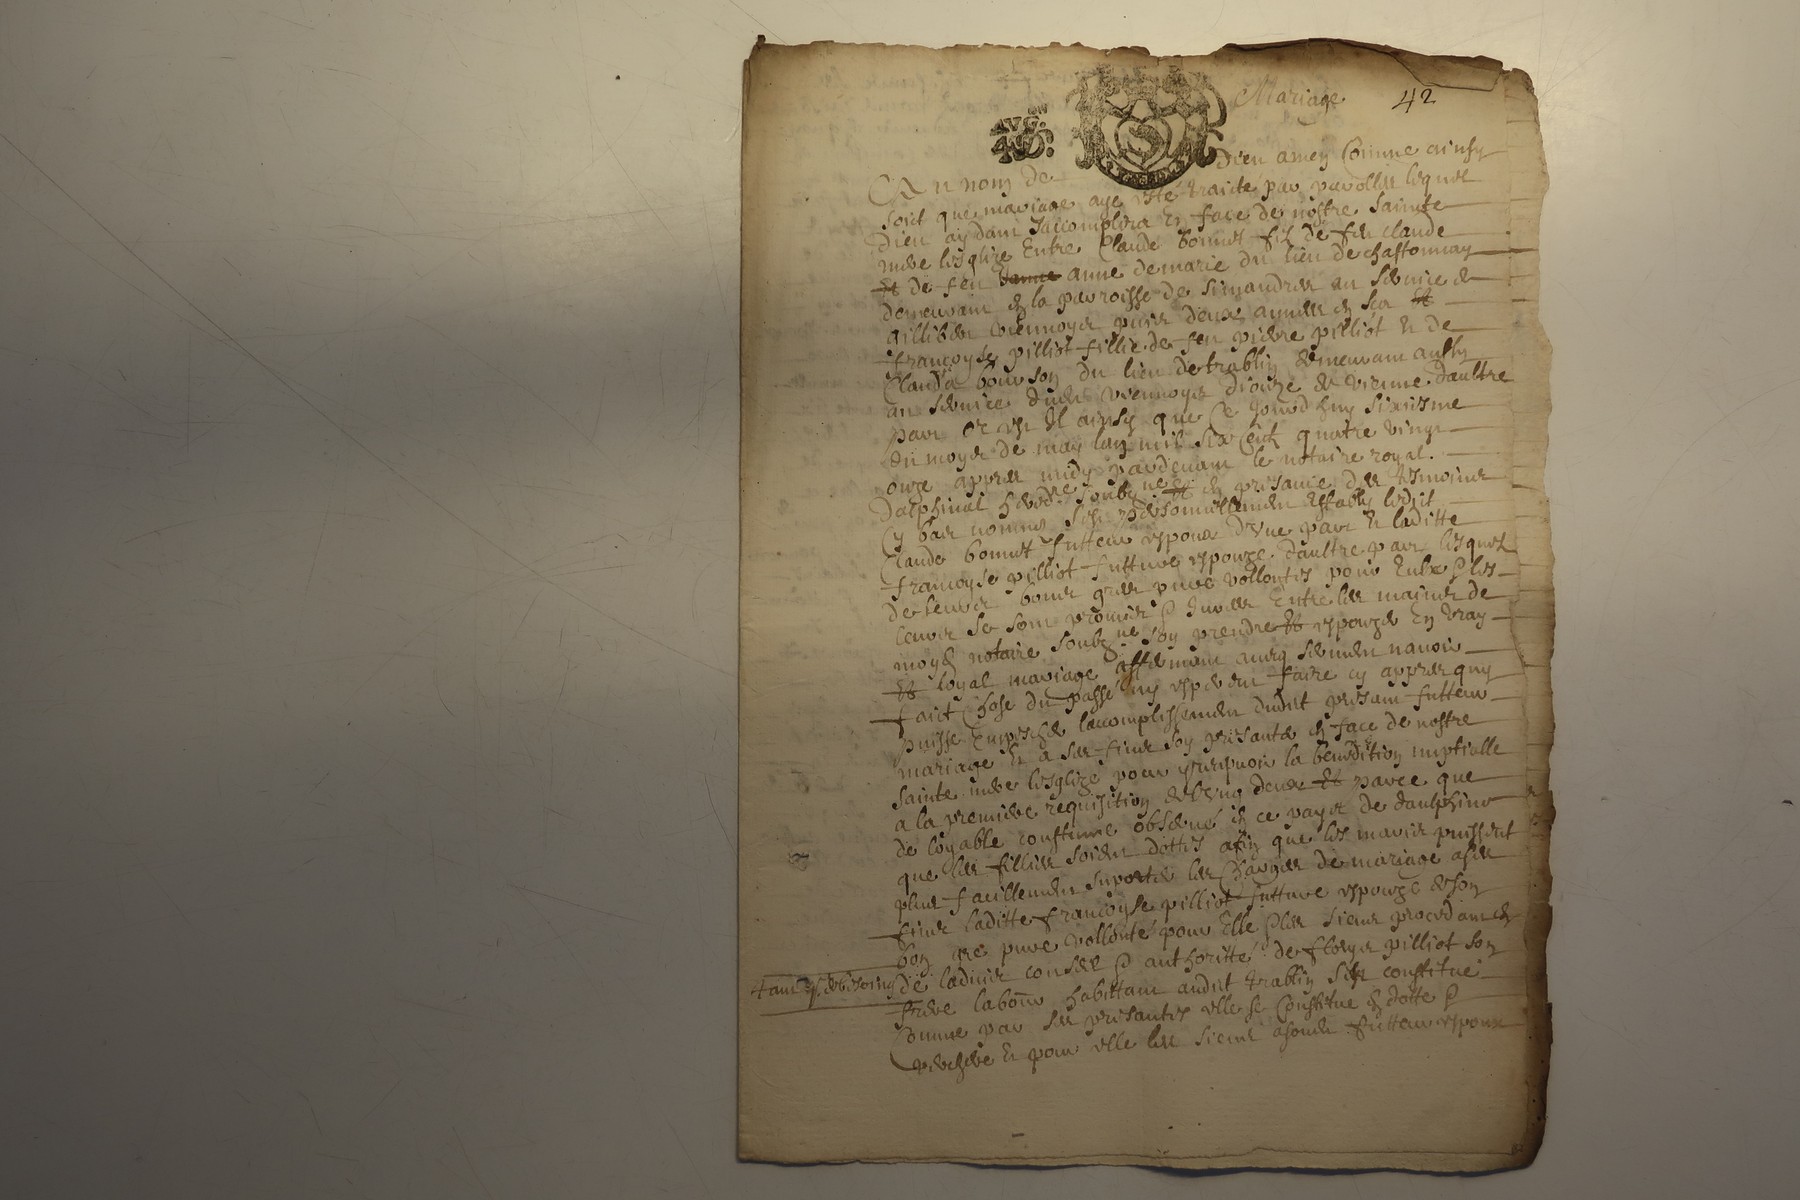 Mariage 42
Au nom de Dieu amen Comme ainsy
soict que mariage aye esté traicté par parolles lequel
Dieu aydant saccomplira en face de nostre sainte
mere lesglize Entre Claude bonnet filz de feu Claude
et de feu anne demarie du lieu de chastonnay
demeurant en la parroisse de simandres au service de
puis deux annees en sca et
francoyse pilliot fillie de feu pierre pilliot et de
Clauda bourson du lieu de trablin demeurant aussy
au service dudit viennoys dioceze de vienne daultre
part or est il ainsy que Ce Jourdhuy sixiesme
du moys de may lan mil six Cent quatre vingt
onze appres midy pardevant le notaire royal
dalphinal soubzne et en presance des tesmoins
Cy bas nommes sest personnellement estably ledit
Claude bonnet futteur espoux dune part et laditte
francoyse pilliot futture espouze daultre part lesquels
de leurs bons gres pures vollontes pour Eulx
leurs se sont promis Jures Entre les mains de
moy notaire soubzne soy prendre et espouzer En vray
et loyal mariage affirmant avecq serment navoir
faict Chose du passé ny esperer faire cy appres quy
puisse Empescher laccomplissement dudit presant futteur
mariage et a ses fins soy presanter en face de nostre
sainte mere lesglize pour y recepvoir la benediction nuptialle
a la premiere requisition de lung deux et parce que
de loyable coustume observé en ce pays de daulphine
que les fillies soient dottes afin que les maris puissent
plus facillement suporter les Charges de mariage a ses
fins laditte francoyse pilliot futture espouze de son
bon gre pure vollonté pour Elle les siens procedant
de ladvis conseil authoritté de pilliot son
frere laboureur habittant audit trablin sest constitue
tant que de besoing
Comme par ses presantes elle se Constitue en dotte
et pour elle les siens futteur espoux